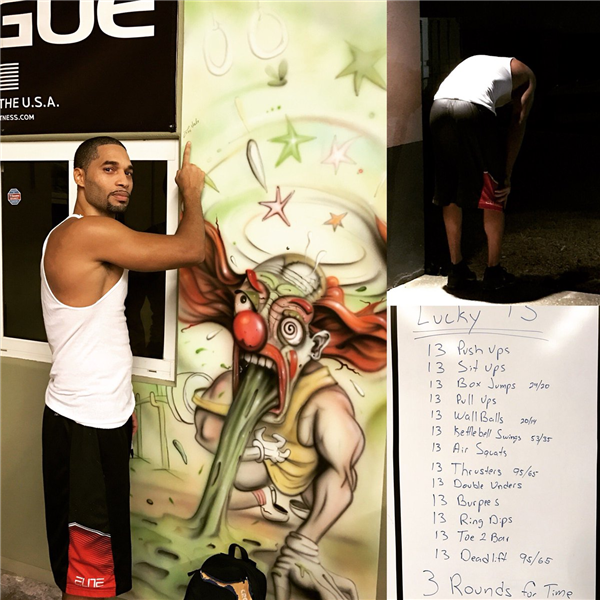 GUE
THE U.S.A.
NESS.COM
ELITE
Lucky 13
13 Push Ups
13 Sit Ups
13 Box Jumps 24/20
13 Pull Ups
13 Wall Balls 20/14
13 Kettlebell Swings 53/35
13 Air Squats
13 Thrusters 95/65
13 Double Unders
13 Burpees
13 Ring Dips
13 Toe 2 Bar
13 Deadlift 95/65
3 Rounds for Time